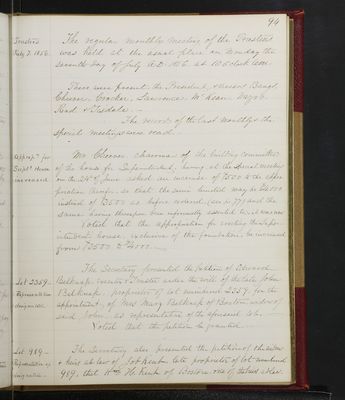 94
Trustees
July 7. 1856.
The regular monthly meeting of the Trustees
was held at the usual place on Monday the
seventh day of July A.D. 1856 at 10 o'clock
There were present the President & Messrs Bangs,
Cheever, Crocker, Lawrence, McKean,
Read & Tisdale.
The record of the last monthly &
special meetings was read.
Mr Cheever chairman of the building committee
of the house for Superintendent, having at the special meeting
on the of June asked an increase of $500 to the appro-
priation
instead of $3500 as before ordered, (see p. 77) and the
same having thereupon been informally assented to, it was now
Voted that the appropriation for erecting the Super-
intendent's house, exclusive of the foundation, be increased
from $3500 to $4000.
increased
The Secretary presented the petition of Edward
Belknap, executor & trustee under the will of the late John
Belknap, proprietor of lot numbered 2359, for the
appointment of Mrs Mary Belknap of Boston widow of
said John, as representative of the aforesaid lot.
Lot 2359
Voted that the petition be granted.
Lot 989
The Secretary also presented the petition of the widow
& heirs at law of late proprietor of lot numbered
989, that of Boston one of